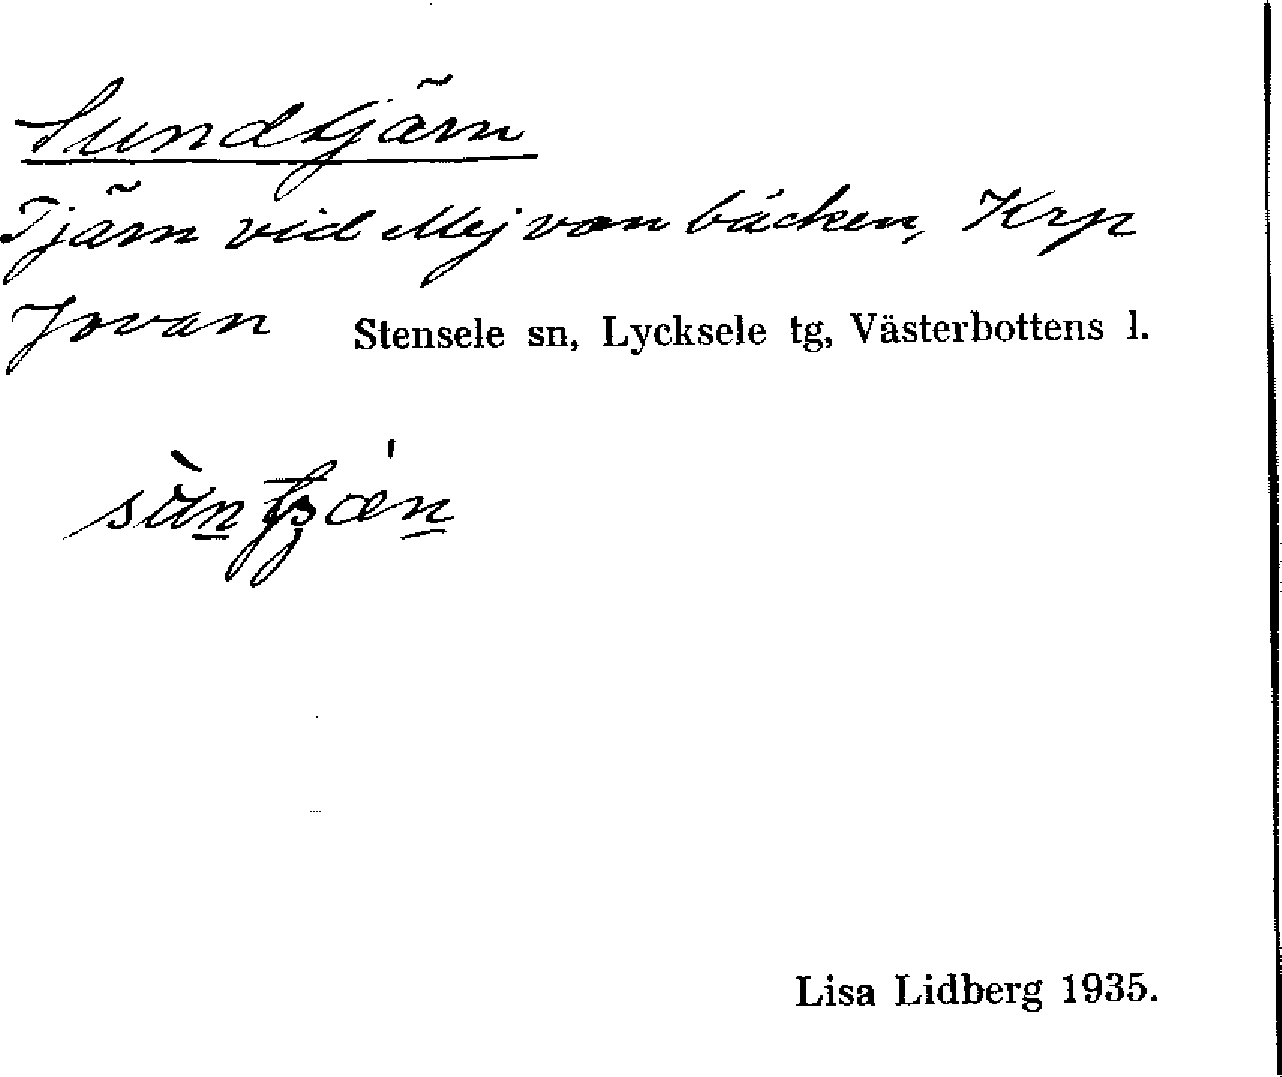 Sundtjärn
Tjärn vid Mejvanbäcken, Krp
Jovan Stensele sn, Lycksele tg, Västerbottens l.
Lisa Lidberg 1935.